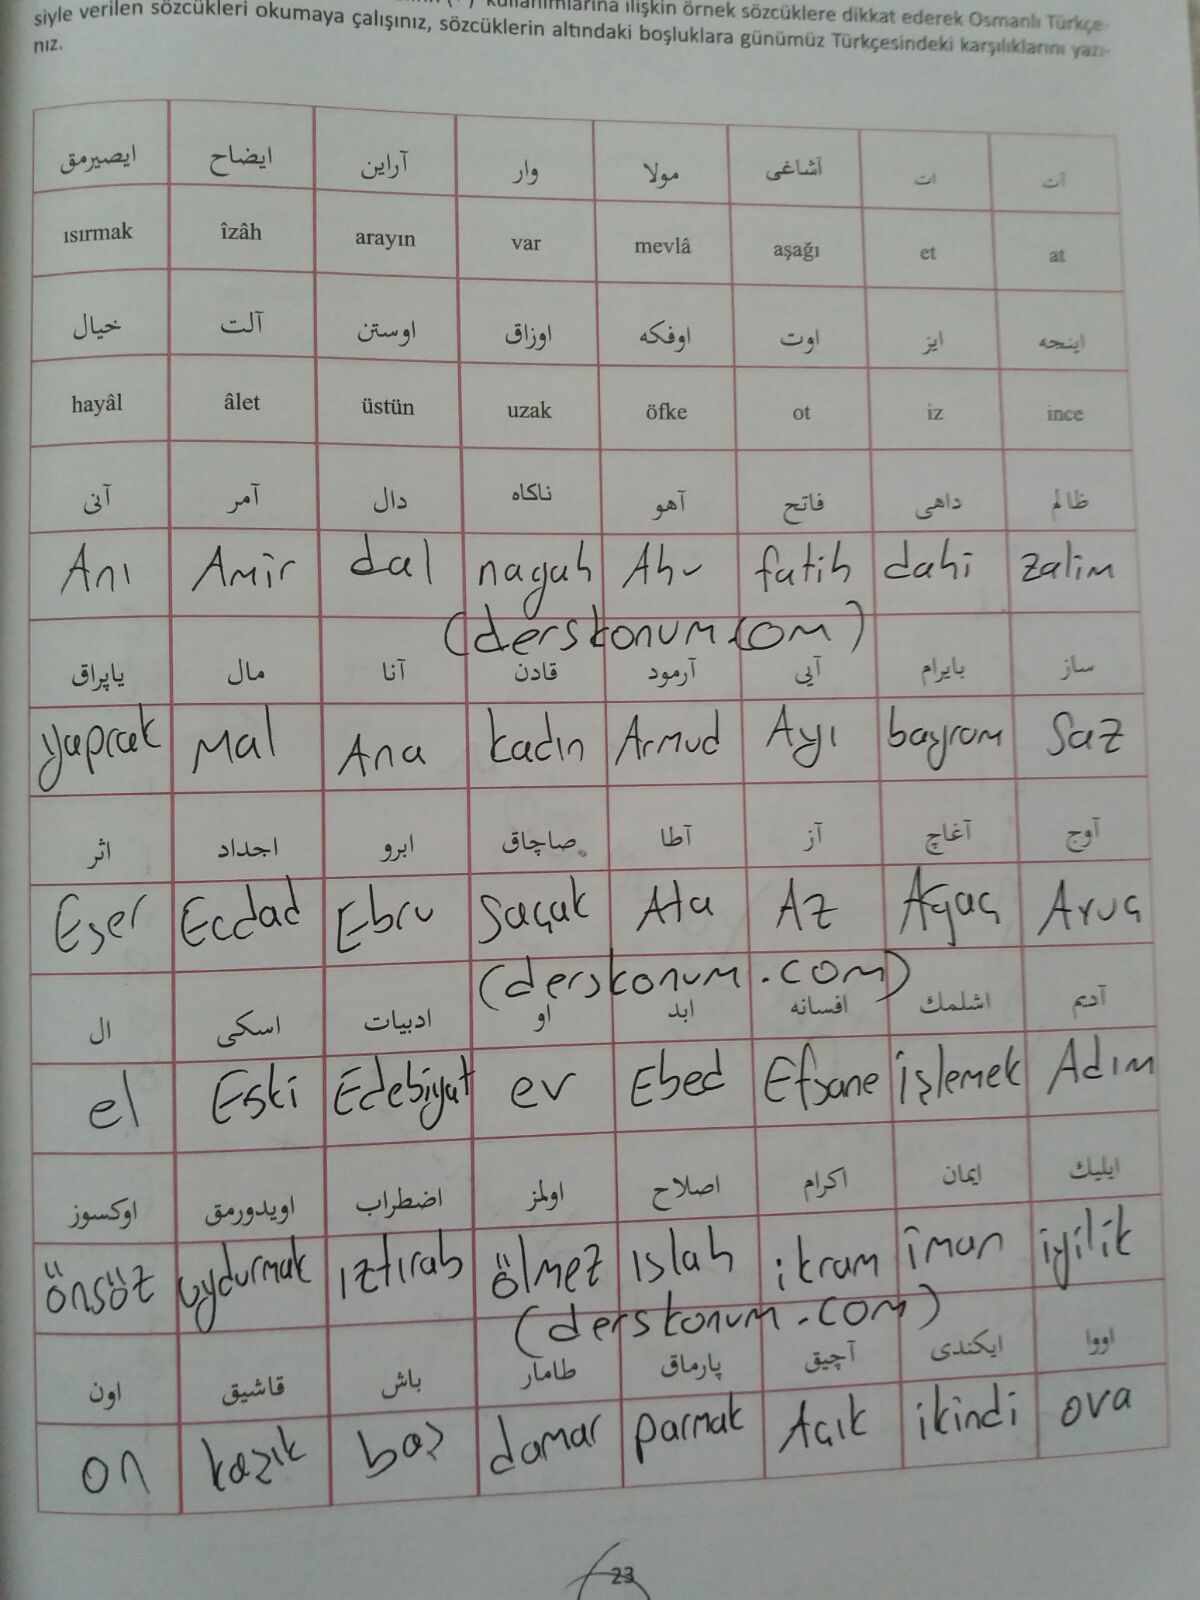 kullanımlarına ilişkin örnek sözcüklere dikkat ederek Osmanlı Türkçe-
siyle verilen sözcükleri okumaya çalışınız, sözcüklerin altındaki boşluklara günümüz Türkçesindeki karşılıklarını yazı-
nız.
ايصيرمق ايضاح آراين وار مولا آشاغی ات آت
ısırmak îzâh arayın var mevlâ aşağı et at
خيال آلت اوستن اوزاق اوفكه اوت ايز اينجه
hayâl âlet üstün uzak öfke ot iz ince
آنی آمر دال ناكاه آهو فاتح داهی ظالم
Anı Amir dal nagah Ahu fatih dahi zalim
(derskonum.com)
ياپراق مال آنا قادن آرمود آيی بايرام ساز
yaprak Mal Ana kadın Armud Ayı bayram Saz
اثر اجداد ابرو صاچاق آطا آز آغاچ آوج
Eser Ecdad Ebru Saçak Ata Az Ağaç Avuç
(derskonum.com)
ال اسكی ادبيات او ابد افسانه اشلمك آديم
el Eski Edebiyat ev Ebed Efsane işlemek Adım
اوكسوز اويدورمق اضطراب اولمز اصلاح اكرام ايمان ايليك
önsöz uydurmak ıztırab ölmez ıslah ikram iman iyilik
(derskonum.com)
اون قاشيق باش طامار پارماق آچيق ايكندی اووا
on kazık baş damar parmak Açık ikindi ova
23